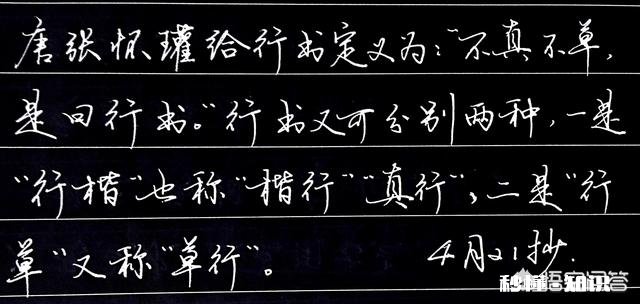 唐张怀瓘给行书定义为：“不真不草，
是曰行书。”行书又可分别两种，一是
“行楷”也称“楷行”“真行”，二是“行
草”又称“草行”。
4月21抄.
悟空问答